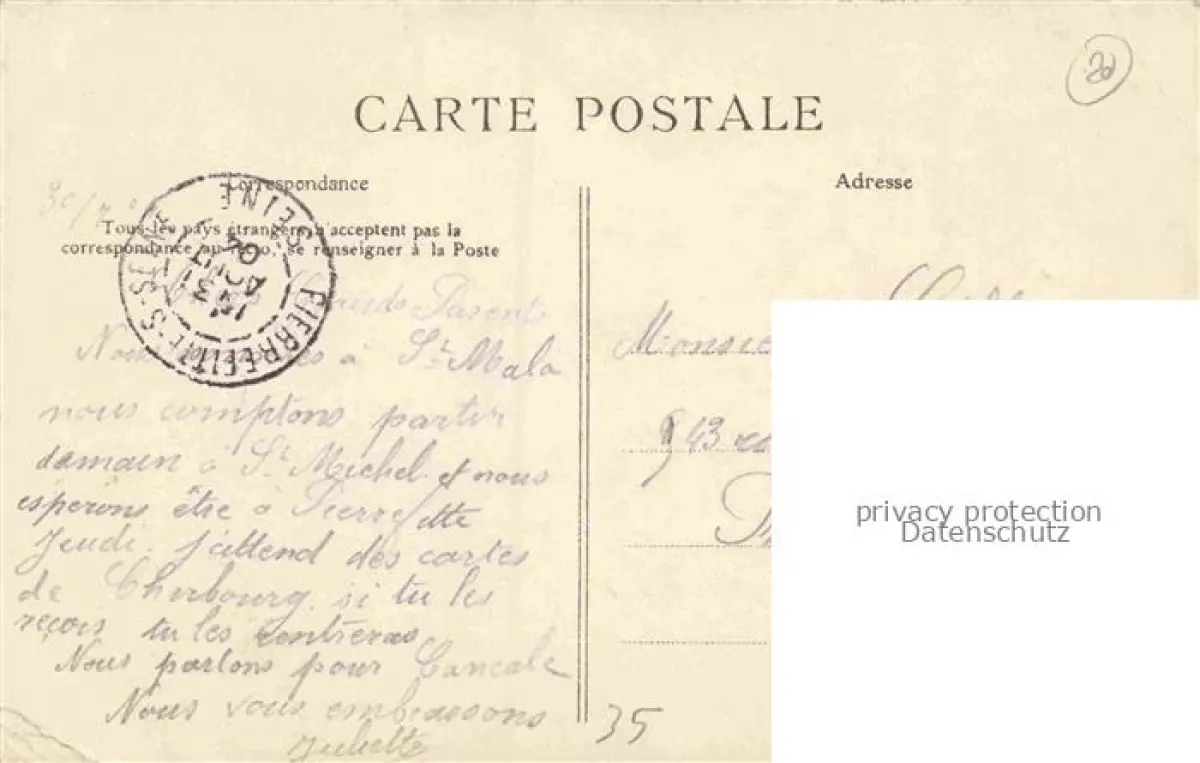 20
CARTE POSTALE
Correspondance
Adresse
Tous les pays étrangers n'acceptent pas la
correspondance au recto, se renseigner à la Poste
PIERREFITTE-S-
SEINE
31
AOUT
Parents
Nous à St Malo
nous comptons partir
damain à St Michel et nous
esperons être à Pierrefitte
Jeudi. j'attend des cartes
de Cherbourg. si tu les
reçois tu les rentreras
Nous partons pour Cancale
Nous vous embrassons
Juliette
Monsie
43
35
privacy protection
Datenschutz